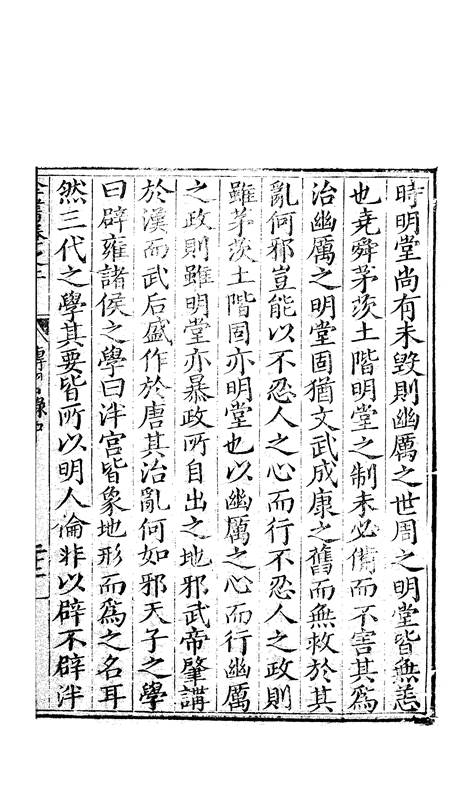 時明堂尚有未毀則幽厲之世周之明堂皆無恙
也堯舜茅茨土階明堂之制未必備而不害其為
治幽厲之明堂固猶文武成康之舊而無救於其
亂何邪豈能以不忍人之心而行不忍人之政則
雖茅茨土階固亦明堂也以幽厲之心而行幽厲
之政則雖明堂亦暴政所自出之地邪武帝肇講
於漢而武后盛作於唐其治亂何如邪天子之學
曰辟雍諸侯之學曰泮宮皆象地形而為之名耳
然三代之學其要皆所以明人倫非以辟不辟泮
全書卷之二
傳習錄中